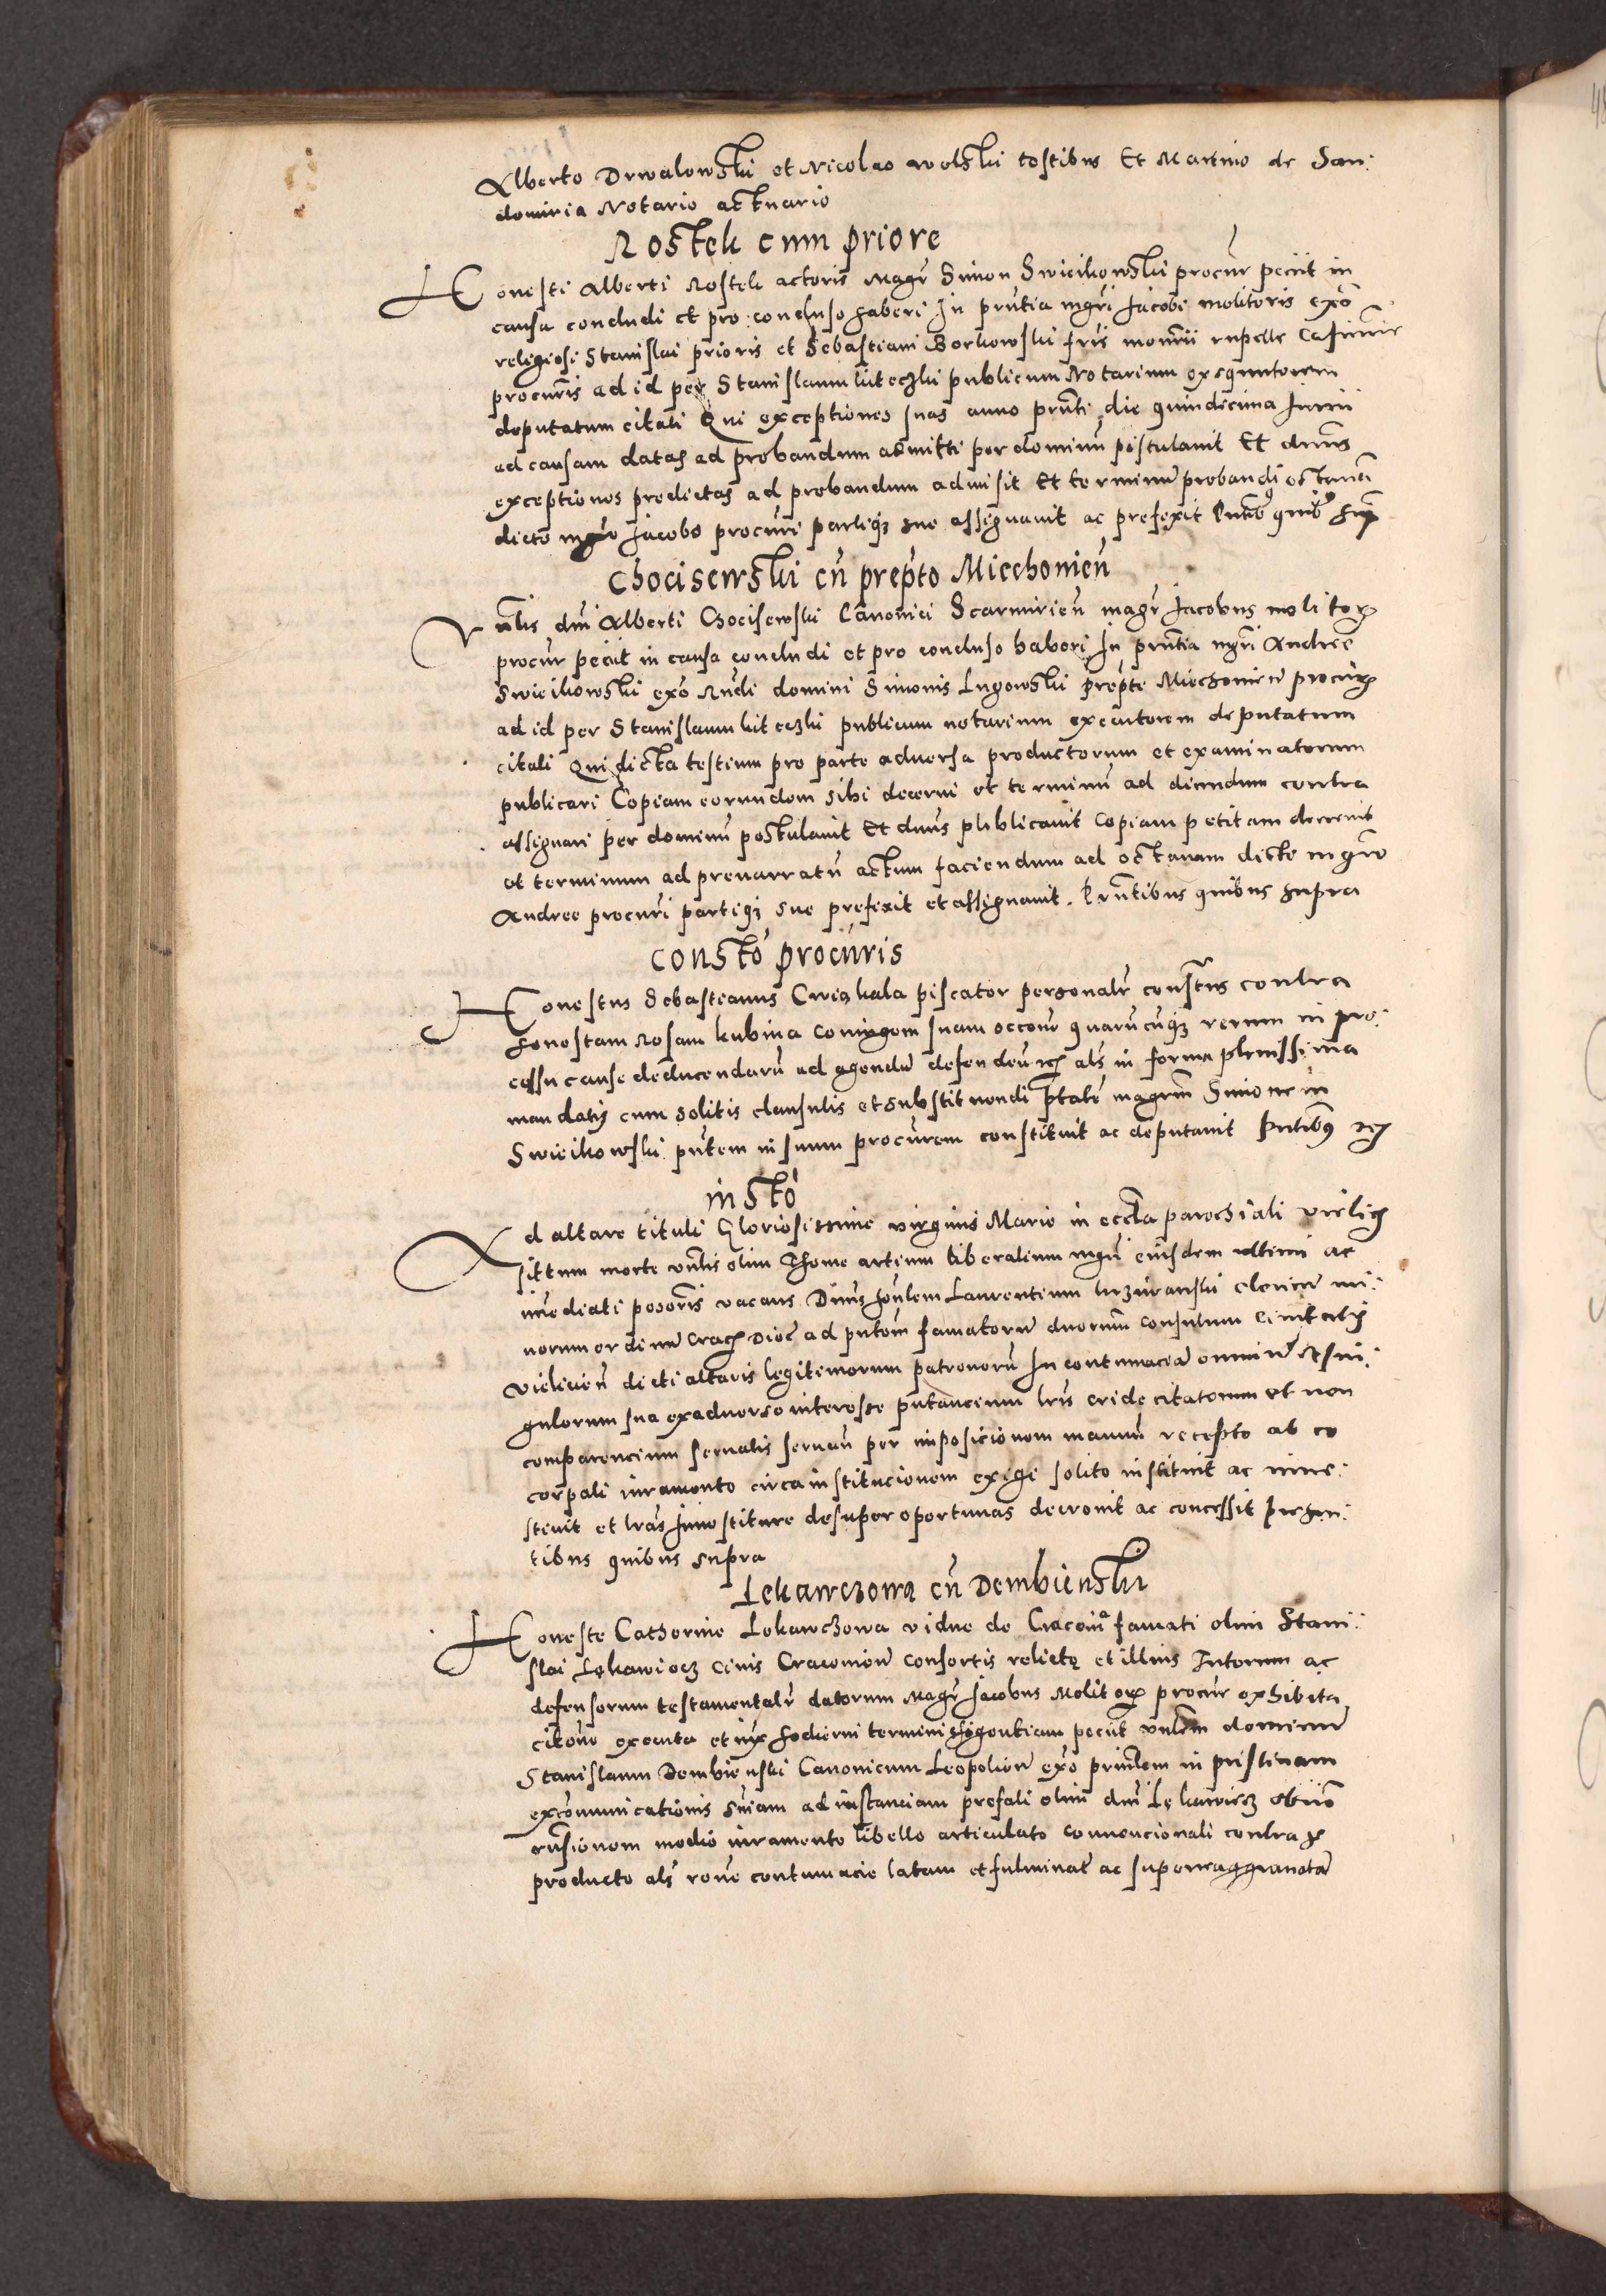 Alberto Drwalowski et Nicolao Wolski testibus Et Martino de San:
domiria Notario actuario
Rostek cum priore
Honesti Alberti Rostek actoris Magr Simon Swieikowski procur peciit in
causa concludi et pro concluso haberi In pntia mgri Jacobi molitoris exo
religiosi Stanislai prioris et Sebastiani Borkowski fris monrii rupelle Casimir
procuris ad id per Stanislaum kiteczki publicum Notarium exequutorem
deputatum citati Qui exceptiones suas anno pnti die quindicima Junii
ad causam datas ad probandum admitti per dominu postulavit Et dnus
exceptiones predictas ad probandum admisit Et terminu probandi octavam
dicto mgro Jacobo procuri partiqz sue assignavit ac prefixit Pntib quib sup
Chocisewski cu prepto Miechovien
Vnlis dni Alberti Chocisewski Canonici Scarmirien magr Jacobus molitor
procur peciit in causa concludi et pro concluso haberi In pntia mgri Andree
Swieikowski exo Rndi domini Simonis Lugowski prepti Miechovien procur
ad id per Stanislaum kiteczki publicum notarium executorem deputatum
citati Qui dicta testium pro parte adversa productorum et examinatorum
publicari Copiam eorumdem sibi decerni et terminu ad dicendum contra
assignari per dominu postulavit Et dnus publicavit Copiam petitam decrevit
et terminum ad prenarratu actum faciendum ad octavam dicto mgro
Andree procuri partiqz sue prefixit et assignavit. Prntibus quibus supra
Consto procuris
Honestus Sebastianus Cwiakala piscator personalr constns contra
honestam Rosam kubina coniugem suam occone quarucuqz rerum in pro:
cessu cause deducendaru ad agendu defendeu als in forma plenissima
mandatis cum solitis clausulis et substituendi ptate magrm Simonem
Swieikowski pntem in suum procurem constituit ac deputavit Pntib
insto
Ad altare tituli Gloriosissime virginis Marie in eccla parochiali vielic
situm morte vnlis olim Thome artium liberalium mgri eiusdem ultimi ac
imediati possoris vacans Dnus honlem Laurentium clericu mi:
norum ordinu Crac Dioc ad pntom famatoru dnorum Consulum Civitatis
vielicien dicti altaris legitimorum patronoru In contumacia omniu et sin:
gulorum sua exadverso interesse putancium lris cride citatorum et non
comparencium servatis servan per imposicionem manuu recepto ab eo
corpali iuramento circa institucionem exigi solito instituit ac inve:
stivit et lras Investiture desuper oportunas decrevit ac concessit presen:
tibus quibus supra
Lekawczowa cu Dembienski
Honeste Catherine Lekawczowa vidue de Cracovia famati olim Stani:
slai Lekawicz Civis Cracovien Consortis relicte et illius Tutorum ac
defensorum testamentalr datorum Magr Jacobus Molitor procur exhibita
citone executa et iux hodierni termini exigentiam peciit vnlem dominu
Stanislaum Dembienski Canonicum Leopolien exo in pristinam
excomunicationis sniam ad instanciam prefati olim dni Lekawicz
modio iuramento libello articulato convencionali contra
producto als rone contumacie latam et fulminat ac superraggravata